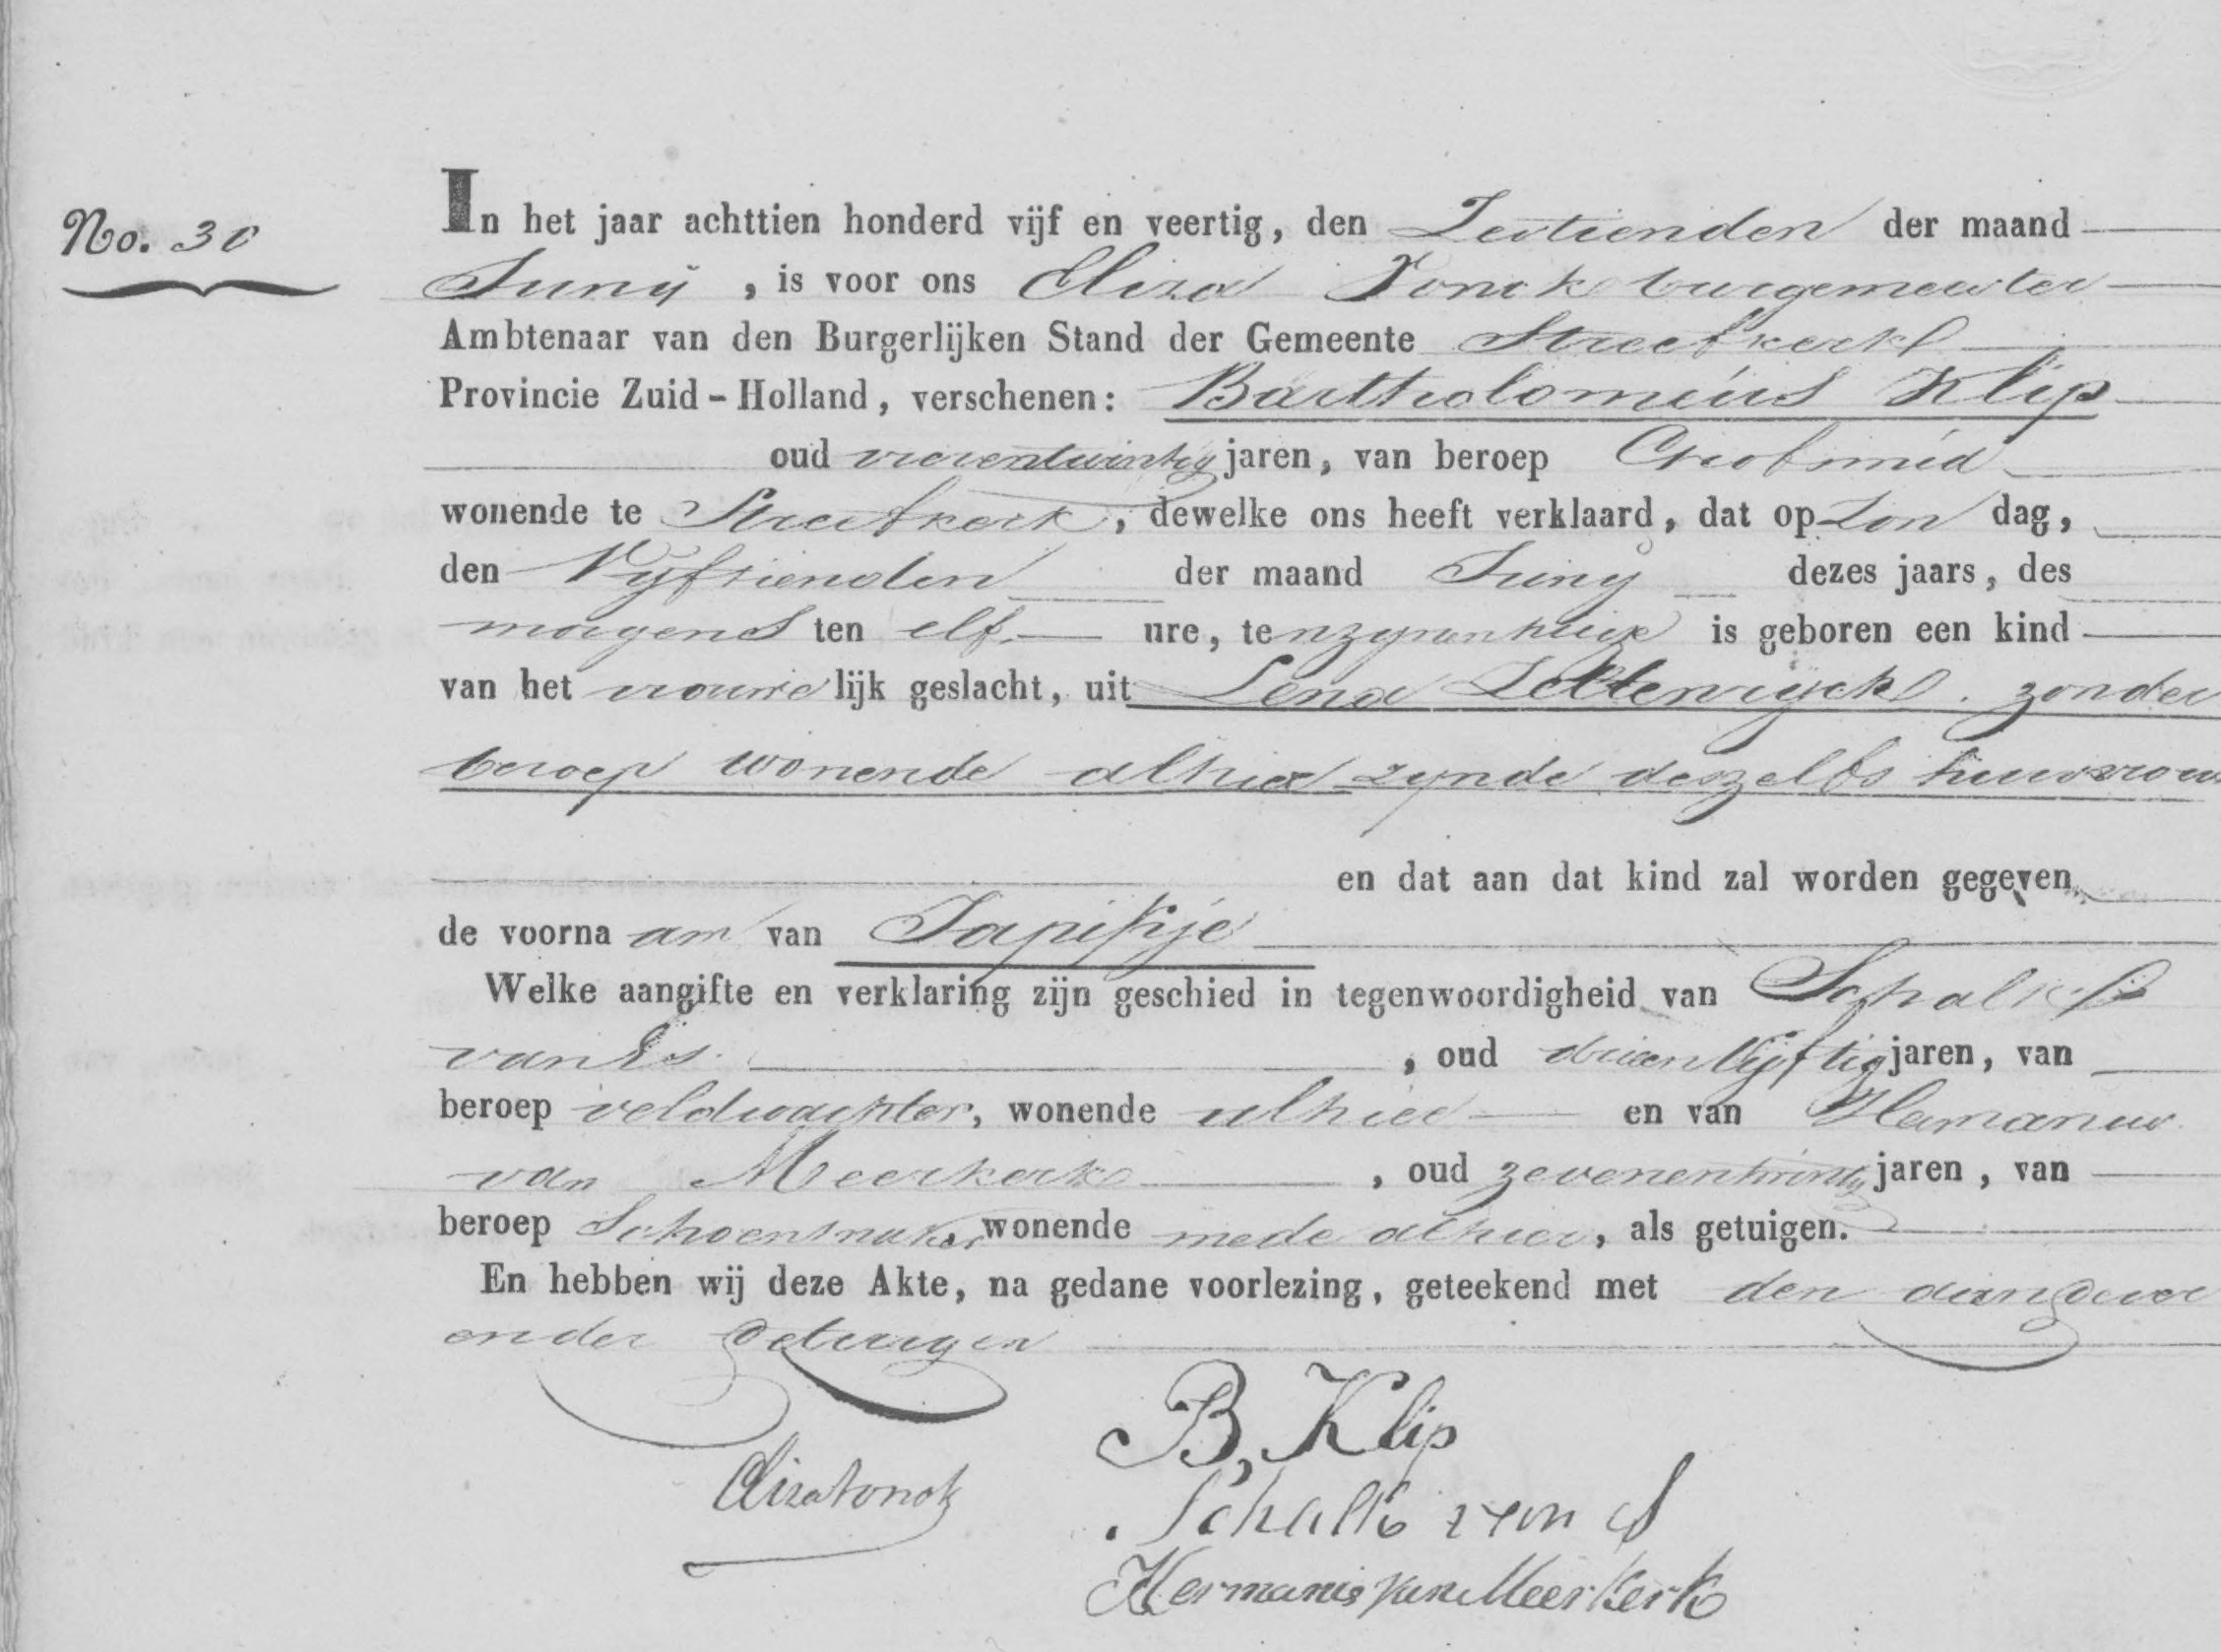 No. 30
In het jaar achttien honderd vijf en veertig, den Zestienden der maand
Junij, is voor ons Eliza Fonck burgemeester
Ambtenaar van den Burgerlijken Stand der Gemeente Streefkerk
Provincie Zuid-Holland, verschenen: Bartholomeus Klip
oud vierentwintig jaren, van beroep Grofsmid
wonende te Streefkerk, dewelke ons heeft verklaard, dat op Zon dag,
den Vyftienden der maand Juny dezes jaars, des
morgens ten elf ure, te nzynenhuize is geboren een kind
van het vrouwe lijk geslacht, uit Lena zonder
beroep wonende alhier zynde deszelfs huisvrouw
en dat aan dat kind zal worden gegeven
de voorna am van
Welke aangifte en verklaring zijn geschied in tegenwoordigheid van Schalk
van Es, oud drienvyftig jaren, van
beroep veldwachter, wonende alhier en van Hermanus
van Meerkerk, oud zevenentwintig jaren, van
beroep Schoenmaker wonende mede alhier, als getuigen.
En hebben wij deze Akte, na gedane voorlezing, geteekend met den aangever
en der getuigen
B, Klip
Eliza Fonck
Schalk van Es
Hermanis van Meerkerk